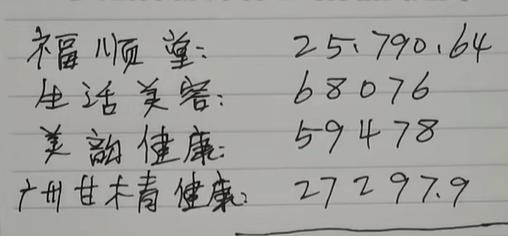 福顺堂: 25.790.64
生活美容: 68076
美韵健康: 59478
广州甘木青健康: 27297.9